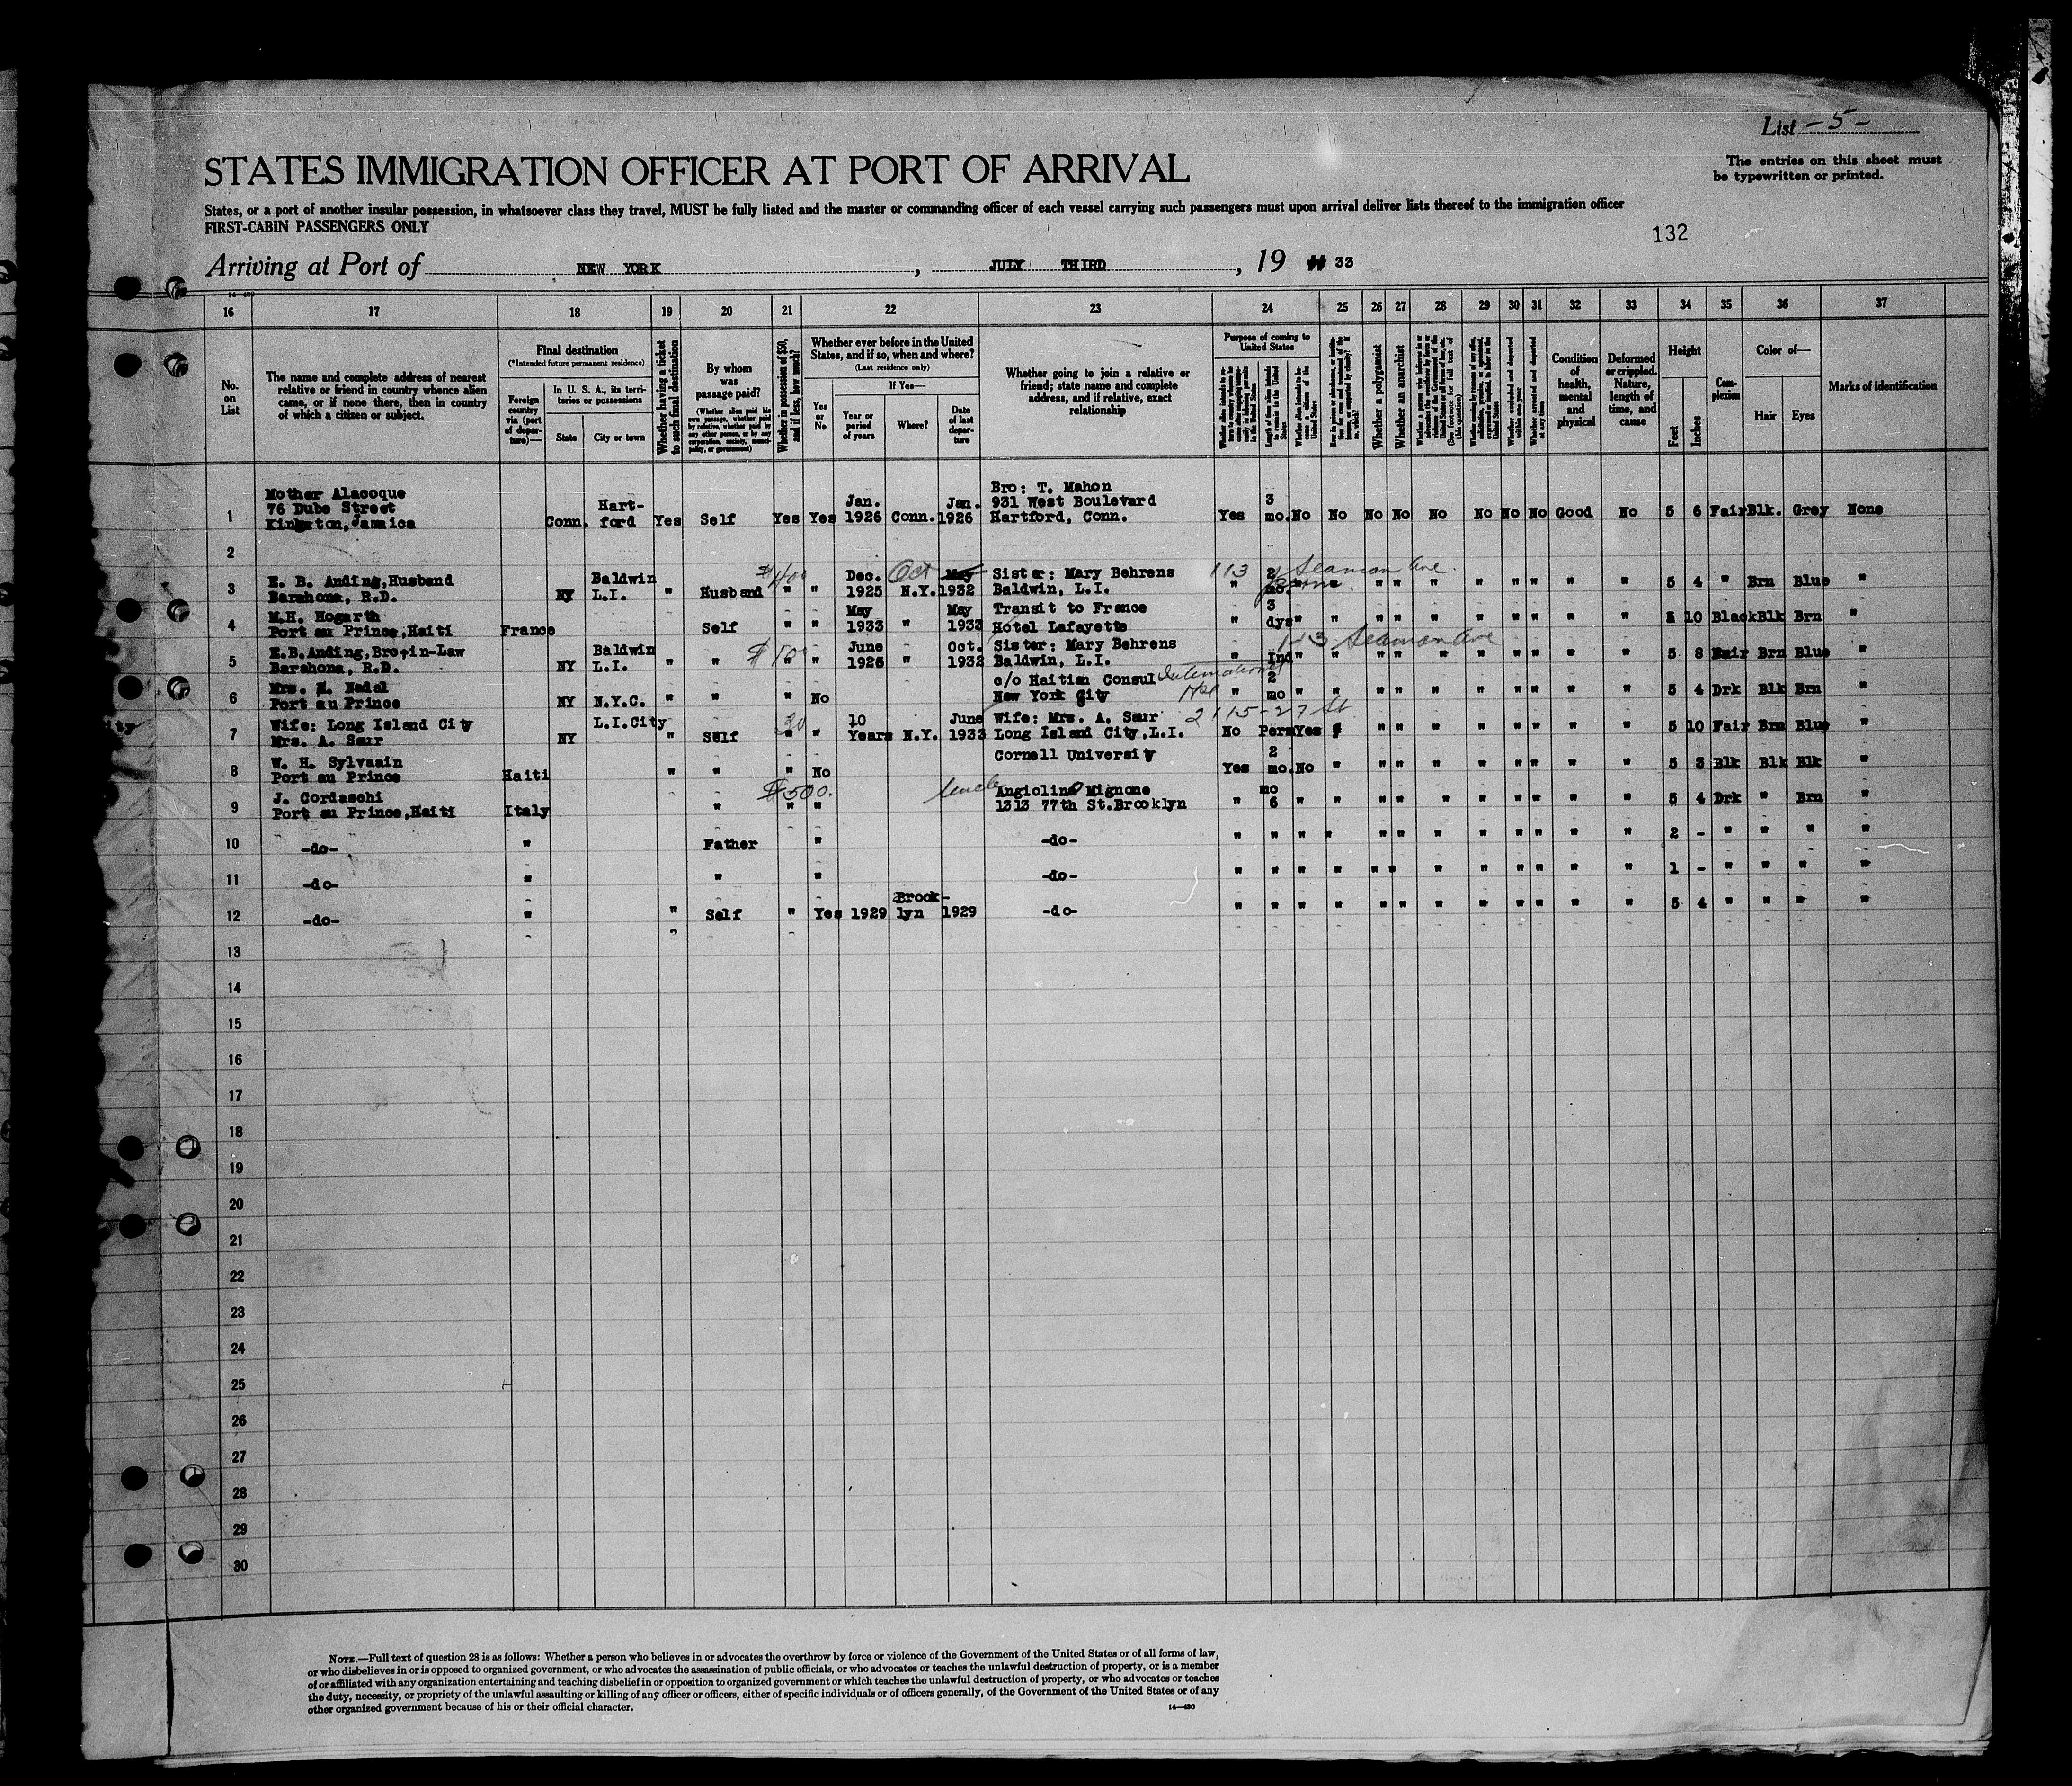 List -5-
STATES IMMIGRATION OFFICER AT PORT OF ARRIVAL
The entries on this sheet must
be typewritten or printed.
States, or a port of another insular possession, in whatsoever class they travel, MUST be fully listed and the master or commanding officer of each vessel carrying such passengers must upon arrival deliver lists thereof to the immigration officer
FIRST-CABIN PASSENGERS ONLY
132
Arriving at Port of NEW YORK, JULY THIRD, 19 33
16 17 18 19 20 21 22 23 24 25 26 27 28 29 30 31 32 33 34 35 36 37
No.
on
List
The name and complete address of nearest
relative or friend in country whence alien
came, or if none there, then in country
of which a citizen or subject.
Final destination
(*Intended future permanent residence)
Foreign
country
via (port
of depar-
ture)—
In U. S. A., its terri-
tories or possessions
State
City or town
Whether having a ticket
to such final destination
By whom
was
passage paid?
(Whether alien paid his
own passage, whether paid
by relative, whether paid by
any other person, or by any
corporation, society, munici-
pality, or government)
Whether in possession of $50,
and if less, how much?
Whether ever before in the United
States, and if so, when and where?
(Last residence only)
If Yes—
Yes
or
No
Year or
period
of years
Where?
Date
of last
depar-
ture
Whether going to join a relative or
friend; state name and complete
address, and if relative, exact
relationship
Purpose of coming to
United States
Length of time alien intends
to remain in the United
States
Whether alien intends to be-
come a citizen of the
United States
Whether a polygamist
Whether an anarchist
Whether excluded and deported
within one year
Whether arrested and deported
at any time
Condition
of
health,
mental
and
physical
Deformed
or crippled.
Nature,
length of
time, and
cause
Height
Feet
Inches
Com-
plexion
Color of—
Hair
Eyes
Marks of identification
1 Mother Alacoque
76 Dube Street
Kingston, Jamaica
Conn. Hart-
ford Yes Self Yes Yes Jan.
1926 Conn. Jan.
1926 Bro: T. Mahon
931 West Boulevard
Hartford, Conn. Yes 3
mo. No No No No No No No No Good No 5 6 Fair Blk. Grey None
2
3 E. B. Anding, Husband
Barahona, R.D. NY Baldwin
L.I. " Husband $400 " " Dec.
1925 N.Y. Oct May
1932 Sister: Mary Behrens 113 Seaman Ave.
Baldwin, L.I. " 2
mo. " " " " " " " " " " 5 4 " Brn Blue "
4 M.H. Hogarth
Port au Prince, Haiti France Self " " May
1933 " May
1933 Transit to France
Hotel Lafayette " 3
dys " " " " " " " " " " 10 Black Blk Brn "
5 E.B. Anding, Bro-in-Law
Barahona, R.D. NY Baldwin
L.I. " " " " June
1926 " Oct.
1932 Sister: Mary Behrens 113 Seaman Ave
Baldwin, L.I. " Ind " " " " " " " " " " 5 8 Fair Brn Blue "
6 Mrs. E. Nadal
Port au Prince NY N.Y.C. " " " No c/o Haitian Consul International
New York City " 2
mo " " " " " " " " " " 5 4 Drk Blk Brn "
7 Wife: Long Island City
Mrs. A. Saur NY L.I.City " Self 30 " " 10
Years N.Y. June
1933 Wife: Mrs. A. Saur 2115-27 St
Long Island City, L.I. No Perm Yes " " " " " " " " " 5 10 Fair Brn Blue "
8 W. H. Sylvaain
Port au Prince Haiti " " " No Cornell University Yes 2
mo. No " " " " " " " " " 5 3 Blk Blk Blk "
9 J. Cordaschi
Port au Prince, Haiti Italy " $500. " " Uncle Angiolina Mignone
1313 77th St. Brooklyn " mo
6 " " " " " " " " " " 5 4 Drk " Brn "
10 -do- " Father " -do- " " " " " " " " " " " " 2 - " " " "
11 -do- " " " -do- " " " " " " " " " " " " 1 - " " " "
12 -do- " " Self " Yes 1929 Brook-
lyn 1929 -do- " " " " " " " " " " " " 5 4 " " " "
13
14
15
16
17
18
19
20
21
22
23
24
25
26
27
28
29
30
NOTE.—Full text of question 28 is as follows: Whether a person who believes in or advocates the overthrow by force or violence of the Government of the United States or of all forms of law,
or who disbelieves in or is opposed to organized government, or who advocates the assassination of public officials, or who advocates or teaches the unlawful destruction of property, or is a member
of or affiliated with any organization entertaining and teaching disbelief in or opposition to organized government or which teaches the unlawful destruction of property, or who advocates or teaches
the duty, necessity, or propriety of the unlawful assaulting or killing of any officer or officers, either of specific individuals or of officers generally, of the Government of the United States or of any
other organized government because of his or their official character.
14—430